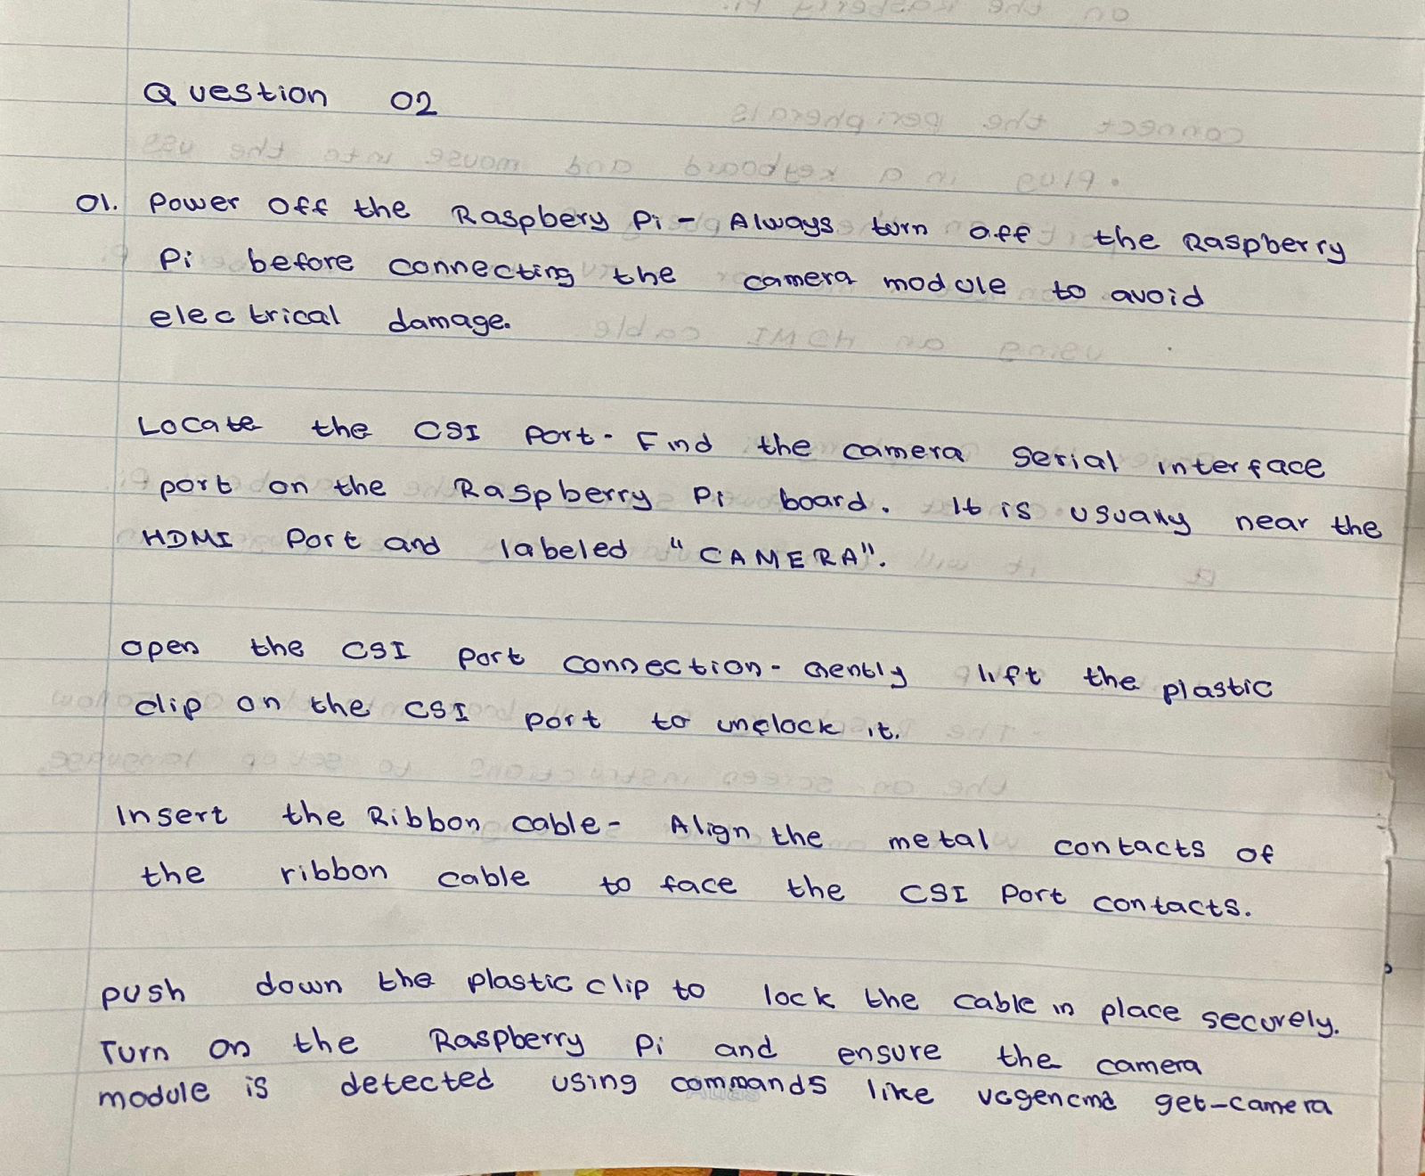 Question 02
01. Power off the Raspbery Pi - Always turn off the Raspberry
Pi before connecting the camera module to avoid
electrical damage.
Locate the CSI Port - Find the camera serial interface
port on the Raspberry Pi board. It is usually near the
HDMI Port and labeled "CAMERA".
open the CSI port connection - Gently lift the plastic
clip on the CSI port to unlock it.
Insert the Ribbon cable - Align the metal contacts of
the ribbon cable to face the CSI Port contacts.
push down the plastic clip to lock the cable in place securely.
Turn on the Raspberry Pi and ensure the camera
module is detected using commands like vcgencmd get-camera